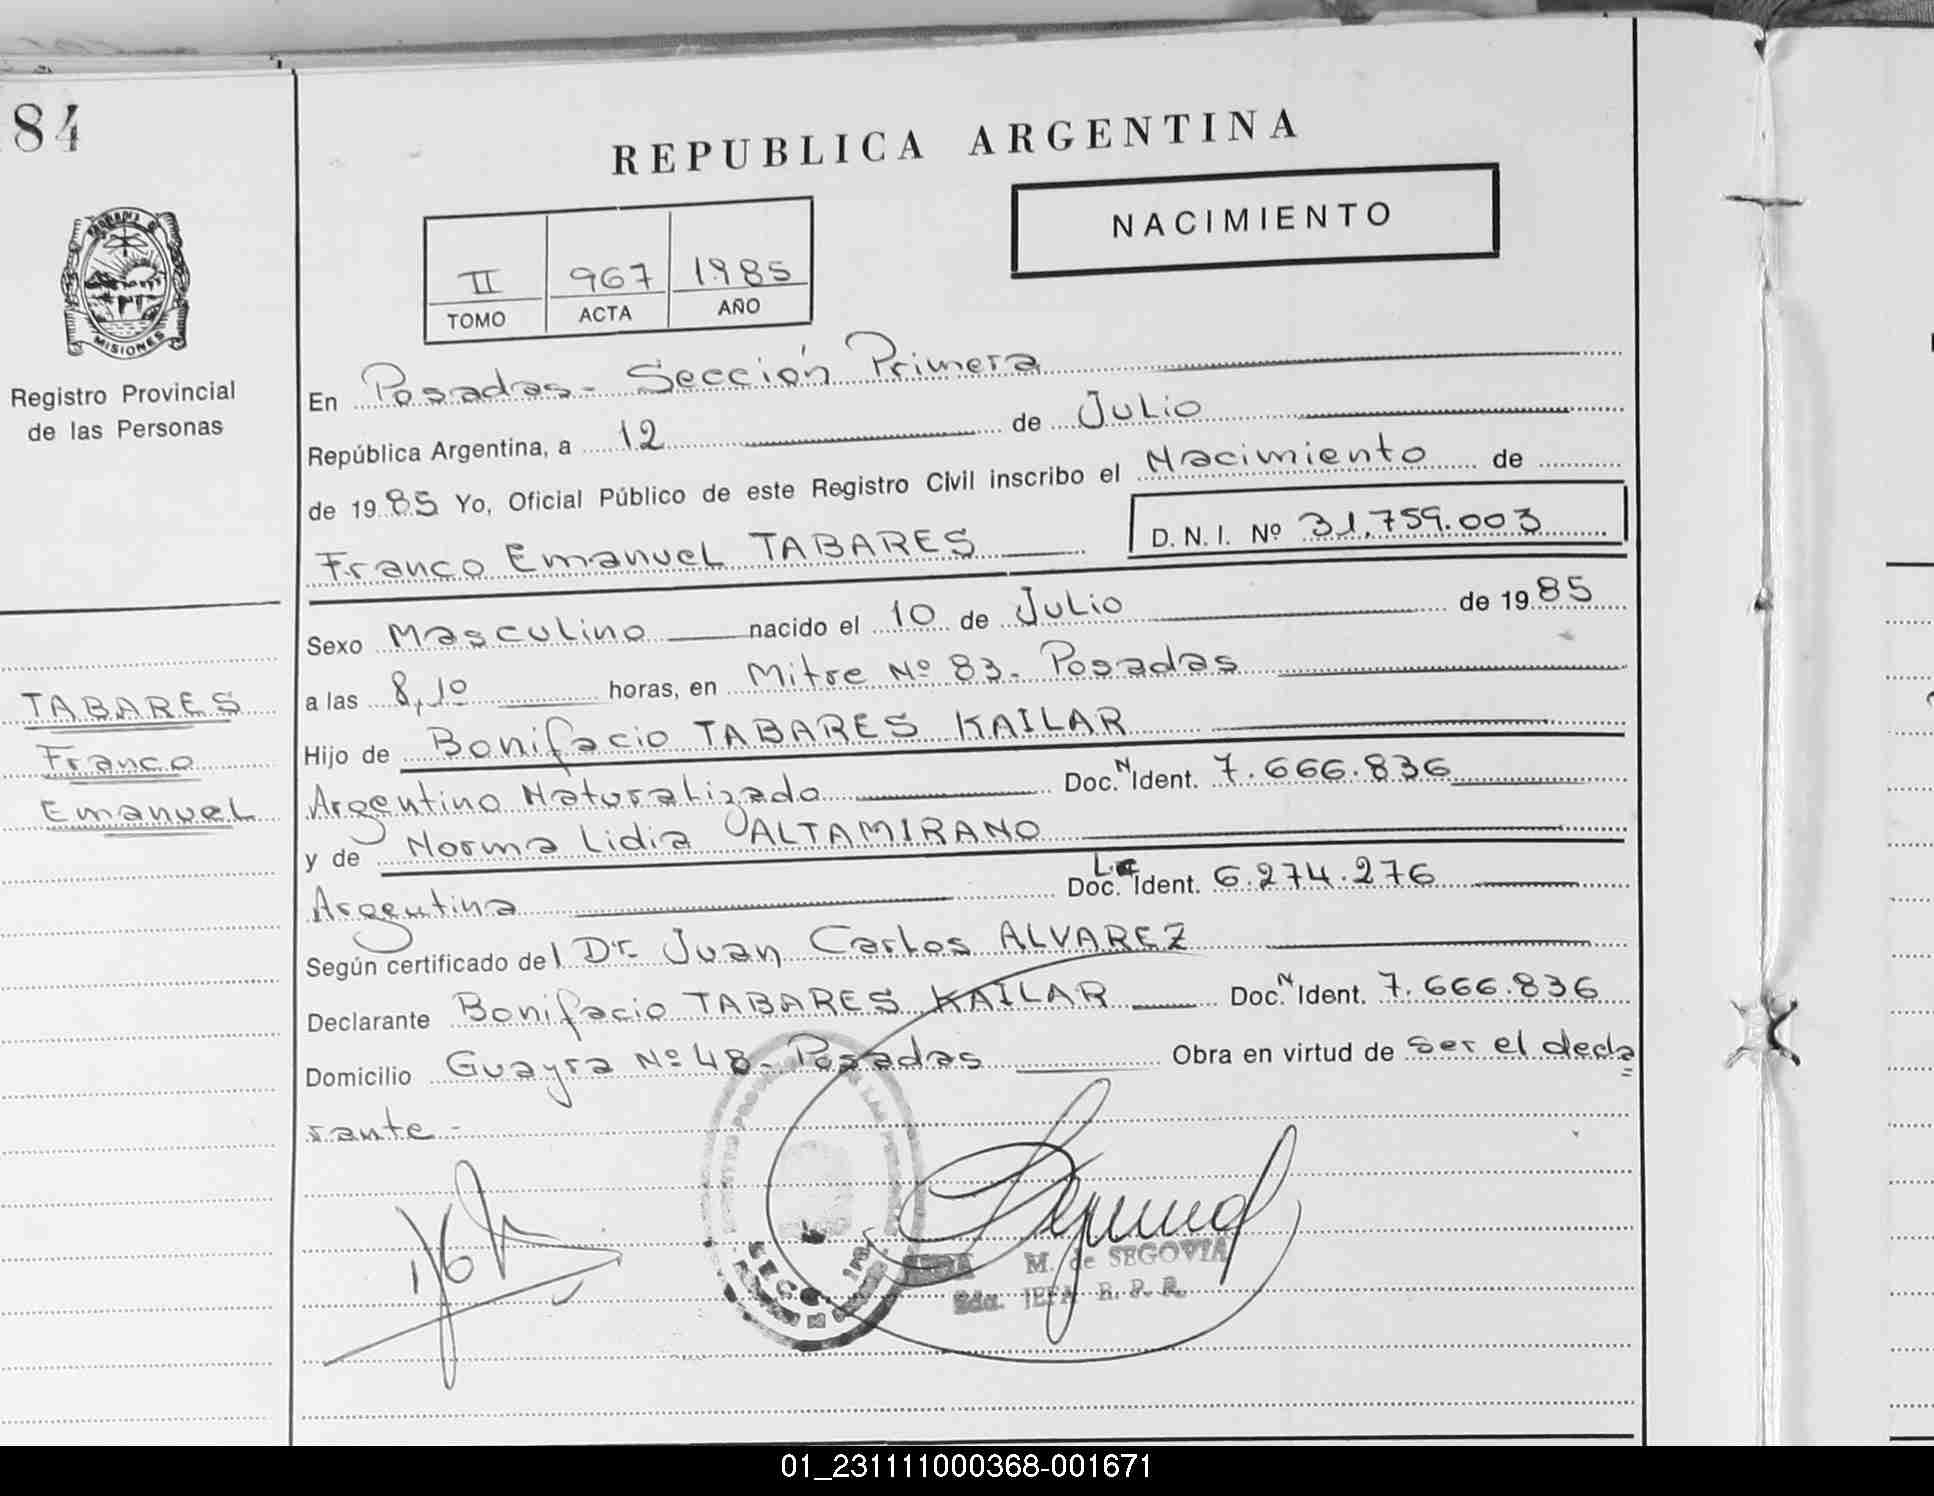 84
REPUBLICA ARGENTINA
NACIMIENTO
II 967 1985
TOMO ACTA AÑO
MISIONES
Registro Provincial
de las Personas
En Posadas - Sección Primera
República Argentina, a 12 de Julio
de 1985 Yo, Oficial Público de este Registro Civil inscribo el Nacimiento de
Franco Emanuel TABARES D.N.I. Nº 31.759.003
Sexo Masculino nacido el 10 de Julio de 1985
a las 8,10 horas, en Mitre Nº 83. Posadas
Hijo de Bonifacio TABARES KAILAR
Argentino Naturalizado Doc. N Ident. 7.666.836
y de Norma Lidia ALTAMIRANO
Argentina Doc. Ident. 6.274.276
Según certificado del Dr. Juan Carlos ALVAREZ
Declarante Bonifacio TABARES KAILAR Doc. N Ident. 7.666.836
Domicilio Guayra Nº 48. Posadas Obra en virtud de ser el decla
rante -
TABARES
Franco
Emanuel
M. de SEGOVIA
2da. JEFA R. P. P.
01_231111000368-001671